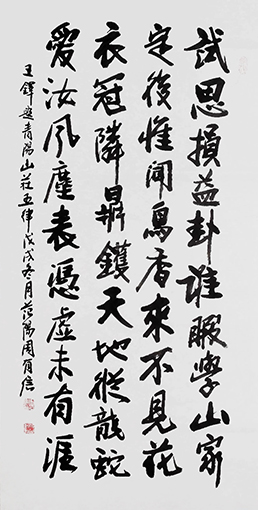 試思損益卦誰暇學山家
定後惟聞鳥香來不見花
衣冠隣鼎鑊天地縱龍蛇
愛汝風塵表憑虛未有涯
王鐸題青陽山莊五律戊戌冬月范陽周